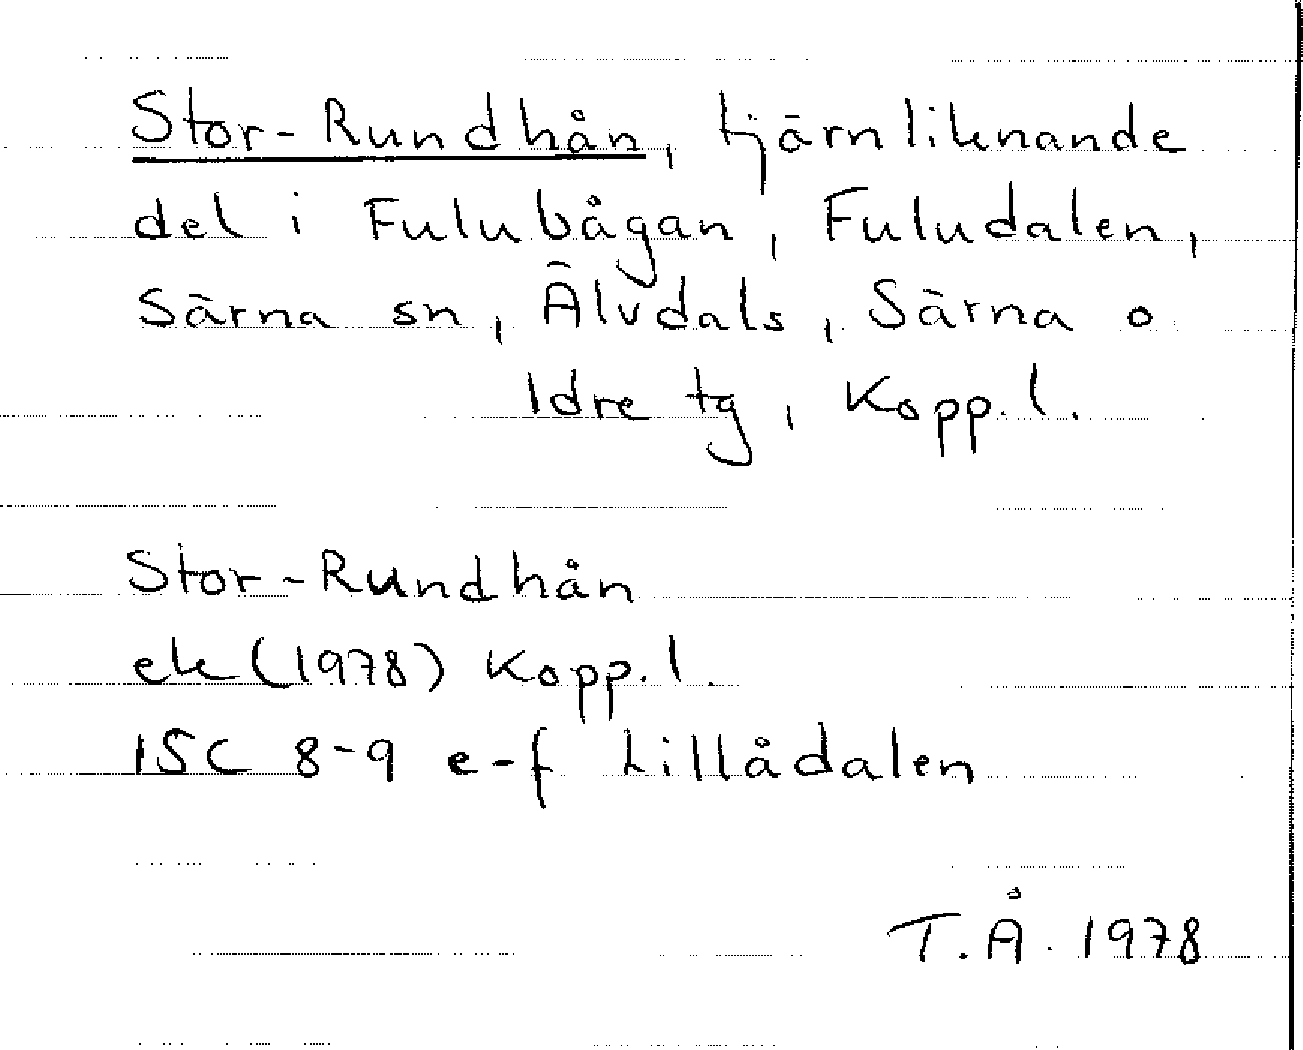 Stor-Rundhån, tjärnliknande
del i Fulubågan, Fuludalen,
Särna sn, Älvdals, Särna o
Idre tg, Kopp.l.
Stor-Rundhån
ek (1978) Kopp.l.
15C 8-9 e-f Lillådalen
T.Å. 1978